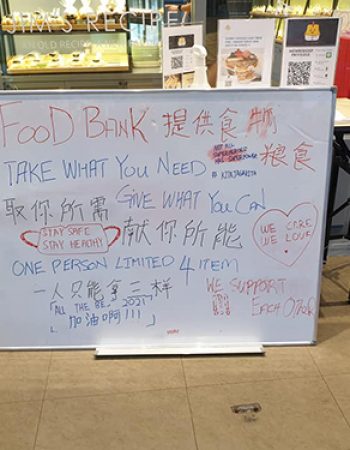 JIM'S RECIPE
AN OLD RECIPE
FOOD BANK 提供食物
粮食
NOT ALL
SUPERHEROES
HAS SUPER POWER
# KITAJAGAKITA
TAKE WHAT YOU NEED
GIVE WHAT YOU CAN
取你所需
献你所能
STAY SAFE
STAY HEALTHY
WE CARE
WE LOVE
ONE PERSON LIMITED 4 ITEM
一人只能拿三样
WE SUPPORT
EACH OTHER
「ALL THE BEST 2021
加油啊!!!」